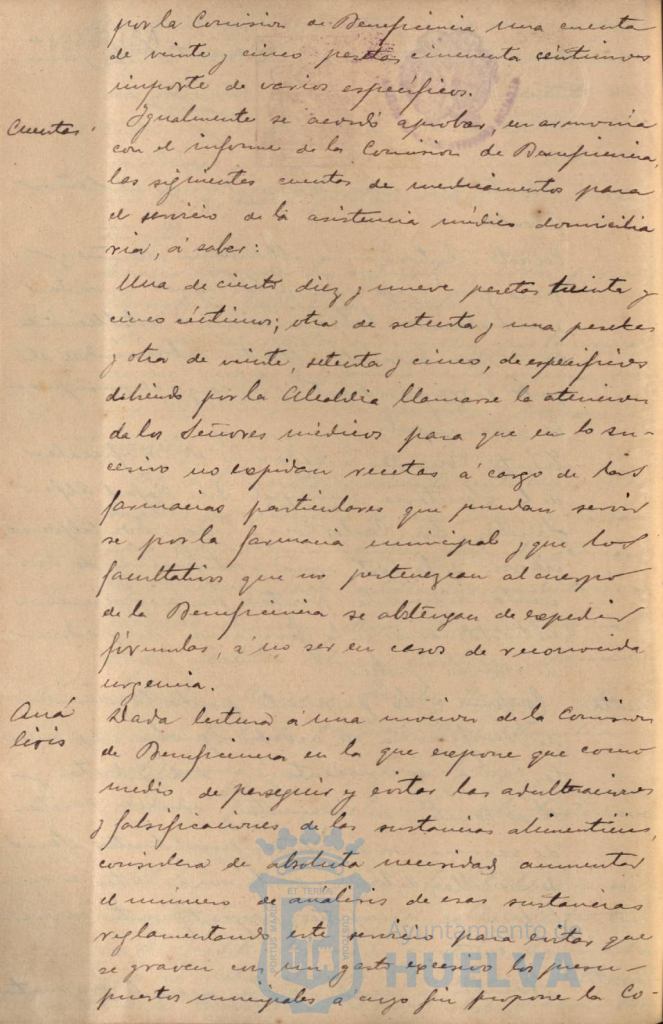 por la Comision de Beneficencia una cuenta
de veinte y cinco pesetas cincuenta céntimos
importe de varios específicos.
Cuentas.
Igualmente se acordó aprobar, en armonía
con el informe de la Comision de Beneficencia,
las siguientes cuentas de medicamentos para
el servicio de la asistencia médico domicilia
ria, á saber:
Una de ciento diez y nueve pesetas treinta y
cinco céntimos; otra de setenta y una pesetas
y otra de veinte, setenta y cinco, de específicos
debiendo por la Alcaldia llamarse la atencion
de los Señores médicos para que en lo su-
cesivo no expidan recetas á cargo de las
farmacias particulares que puedan servir
se por la farmacia municipal y que los
facultativos que no pertenezcan al cuerpo
de la Beneficencia se abstengan de expedir
fórmulas, á no ser en casos de reconocida
urgencia.
Aná
lisis
Dada lectura á una mocion de la Comision
de Beneficencia en la que expone que como
medio de perseguir y evitar las adulteraciones
y falsificaciones de las sustancias alimenticias,
considera de absoluta necesidad aumentar
el número de análisis de esas sustancias
reglamentando este servicio para evitar que
se graven con un gasto excesivo los presu-
puestos municipales a cuyo fin propone la Co-
PORTUS MARIS
ET TERRAE
CUSTODIA
Ayuntamiento de
HUELVA